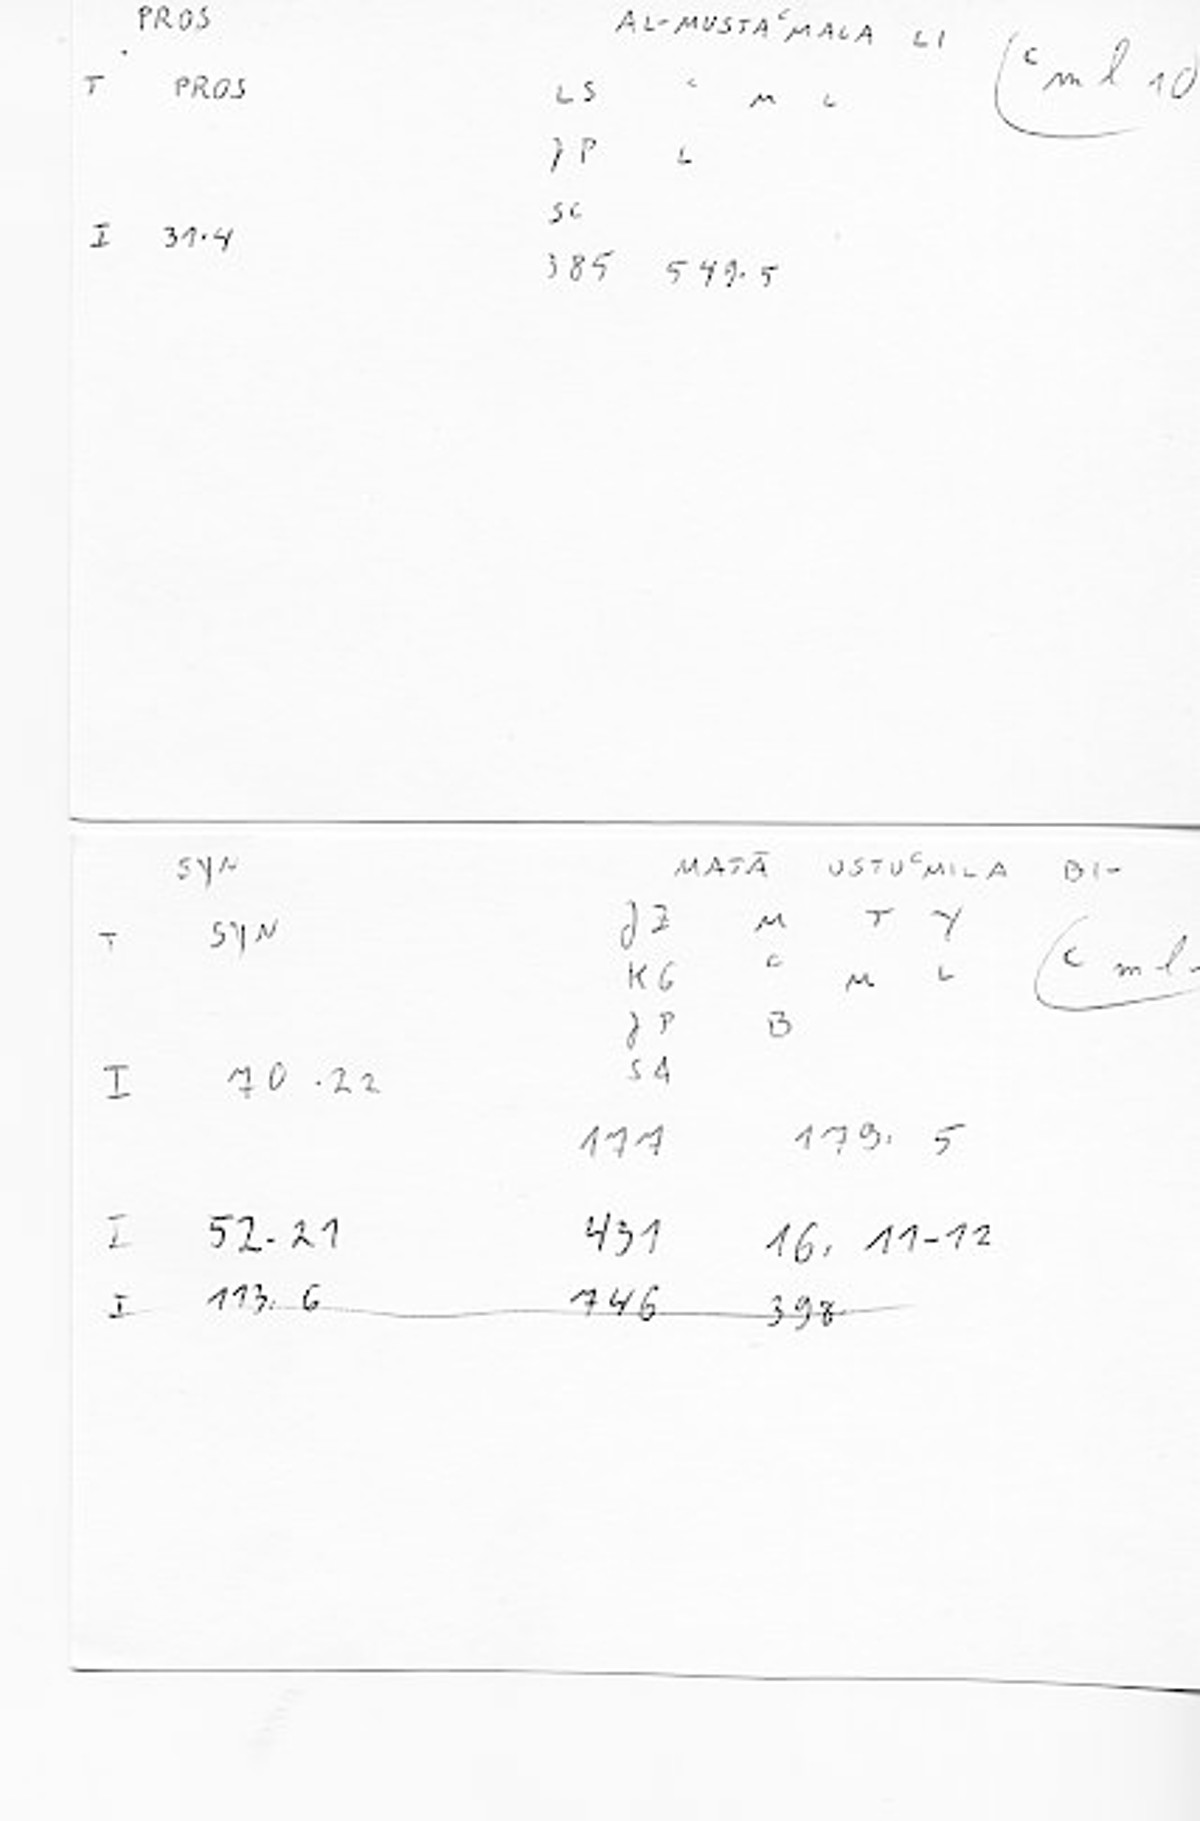 PROS AL-MUSTAᶜMALA LI
T PROS LS ᶜ M L (ᶜml 10
JP L
SC
I 31.4
385 549.5
SYN MATĀ USTUᶜMILA BI-
T SYN JZ M T Y
KG ᶜ M L (ᶜml
JP B
I 70.22 SA
171 179. 5
I 52.21 431 16, 11-12
I 113. 6 746 398